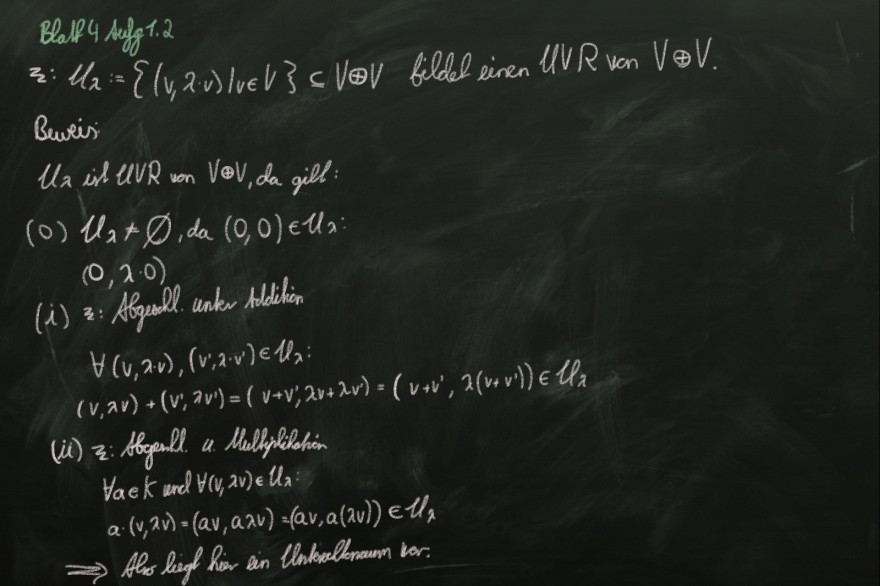 Blatt 4 Aufg 1.2
z: U_λ := {(v, λ·v) | v ∈ V} ⊆ V⊕V bildet einen UVR von V⊕V.
Beweis:
U_λ ist UVR von V⊕V, da gilt:
(0) U_λ ≠ ∅, da (0,0) ∈ U_λ:
(0, λ·0)
(i) z: Abgeschl. unter Addition
∀ (v, λ·v), (v', λ·v') ∈ U_λ:
(v, λv) + (v', λv') = (v+v', λv+λv') = (v+v', λ(v+v')) ∈ U_λ
(ii) z: Abgeschl. u. Multiplikation
∀a∈K und ∀(v, λv) ∈ U_λ:
a·(v, λv) = (av, aλv) = (av, a(λv)) ∈ U_λ
⟹ Also liegt hier ein Untervektorraum vor.